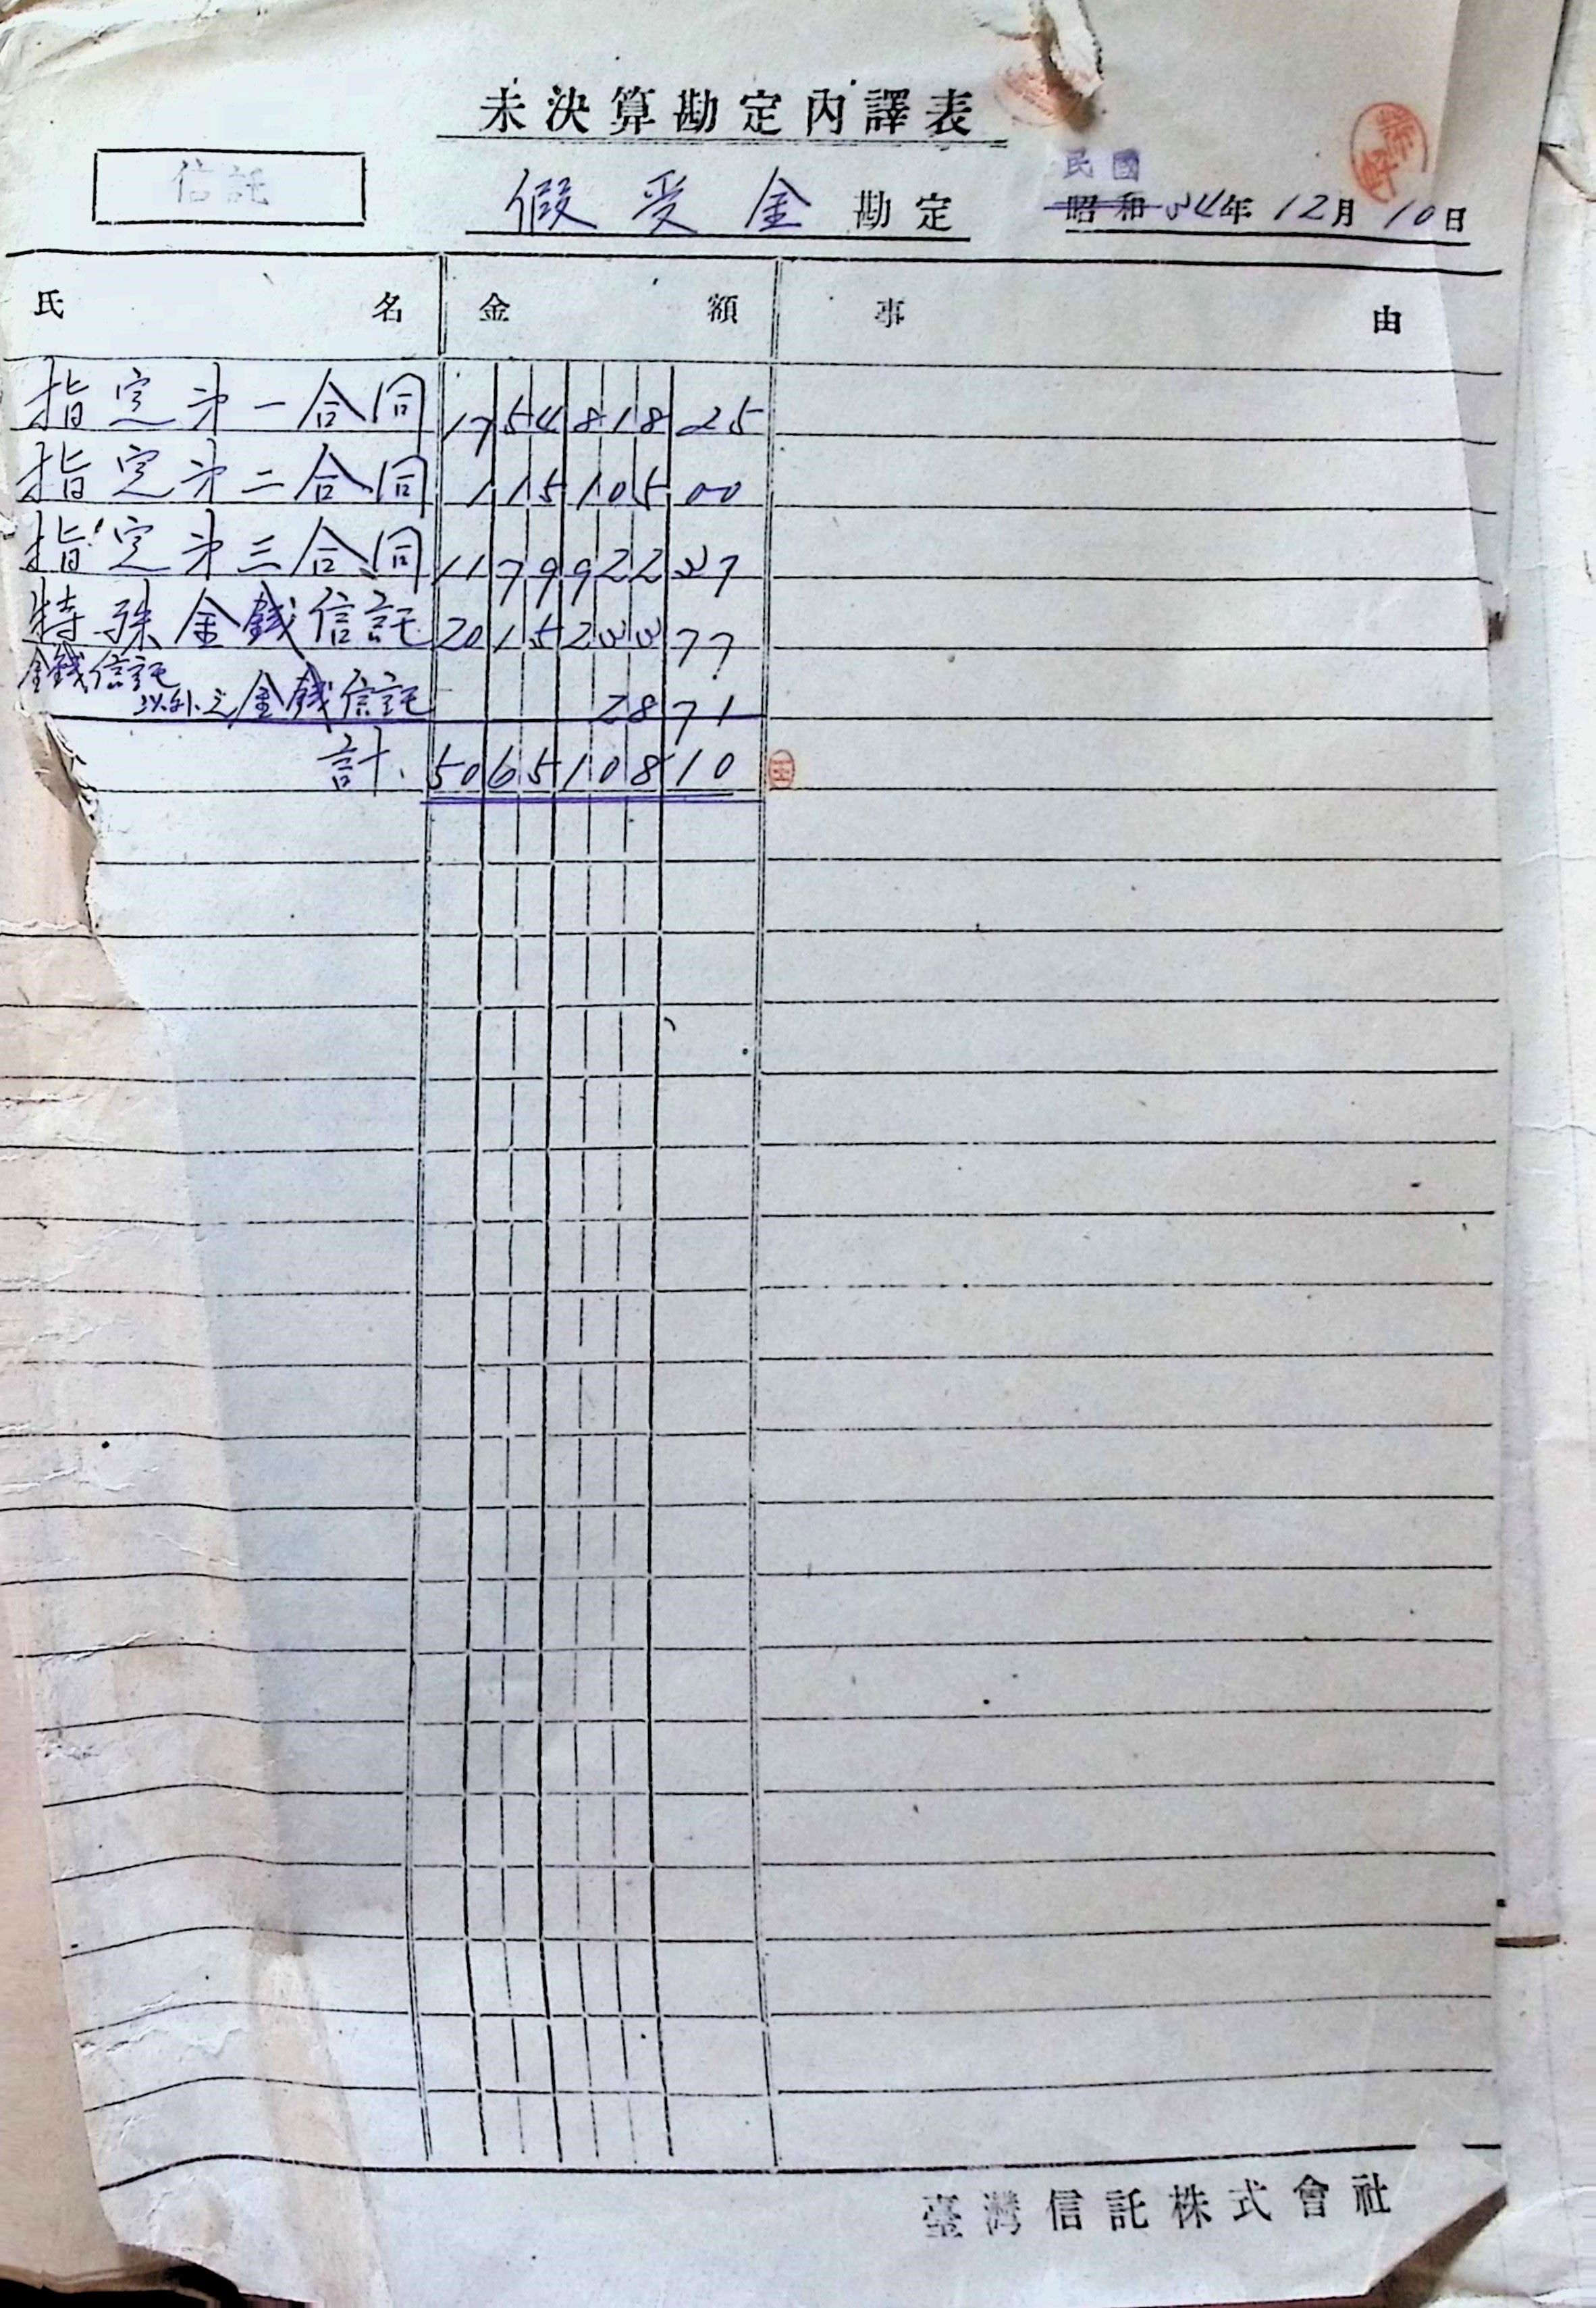 未決算勘定內譯表
信託
假受金勘定
民國
昭和34年12月10日
氏名 金額 事由
指定㐧一合同 1754818 25
指定㐧二合同 115105 00
指定㐧三合同 1179922 37
特殊金銭信託 2015233 77
金銭信託以外之金銭信託 28 71
計 5065108 10
臺灣信託株式會社